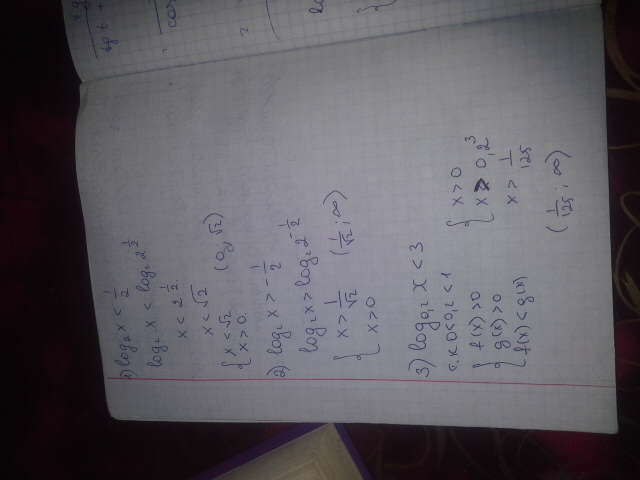 1) log₂ x < 1/2
log₂ x < log₂ 2^(1/2)
x < 2^(1/2)
x < √2
{ x < √2 (0; √2)
x > 0
2) log₂ x > -1/2
log₂ x > log₂ 2^(-1/2)
{ x > 1/√2 (1/√2 ; ∞)
x > 0
3) log₀,₂ x < 3
т.к 0 < 0,2 < 1
{ f(x) > 0
g(x) > 0
f(x) < g(x)
{ x > 0
x > 0,2³
x > 1/125
(1/125 ; ∞)